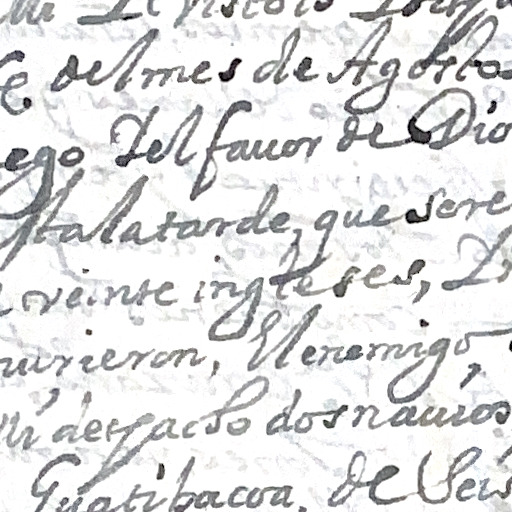 del mes de Agosto
ego Del fauor de Dio
sta la tarde, que sere
veinte ingleses,
murieron, El enemigo,
despacho dos nauios
Guatibacoa, de Seis